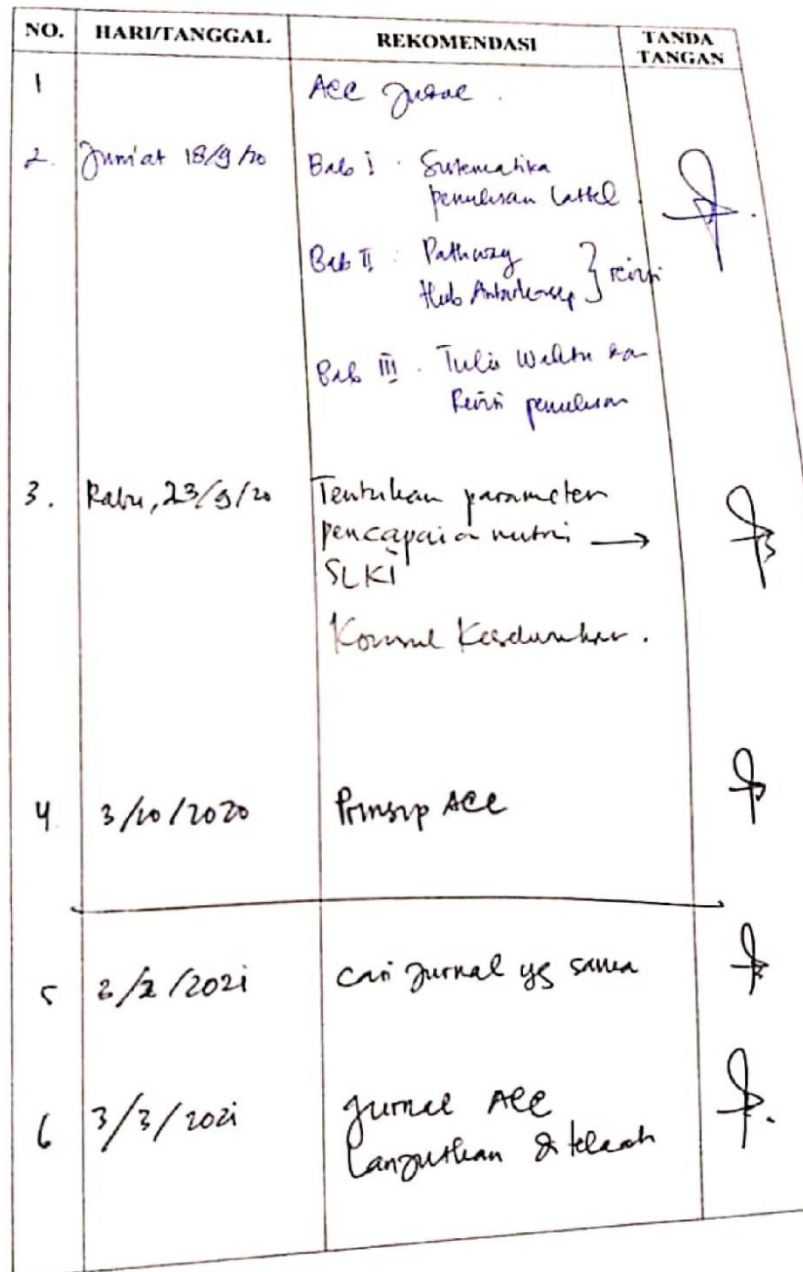 NO. HARI/TANGGAL REKOMENDASI TANDA TANGAN
1 Acc Jurnal.
2. Jum'at 18/9/20 Bab I. Sistematika
penulisan
Bab II: Pathway
Hub Antarkonsep } revisi
Bab III. Tulis
Revisi penulisan
3. Rabu, 23/9/20 Tentukan parameter
pencapaian nutrisi →
SLKI
Konsul Keseluruhan.
4 3/10/2020 Prinsip Acc
5 2/2/2021 Cari Jurnal yg sama
6 3/3/2021 Jurnal Acc
Lanjutkan di telaah